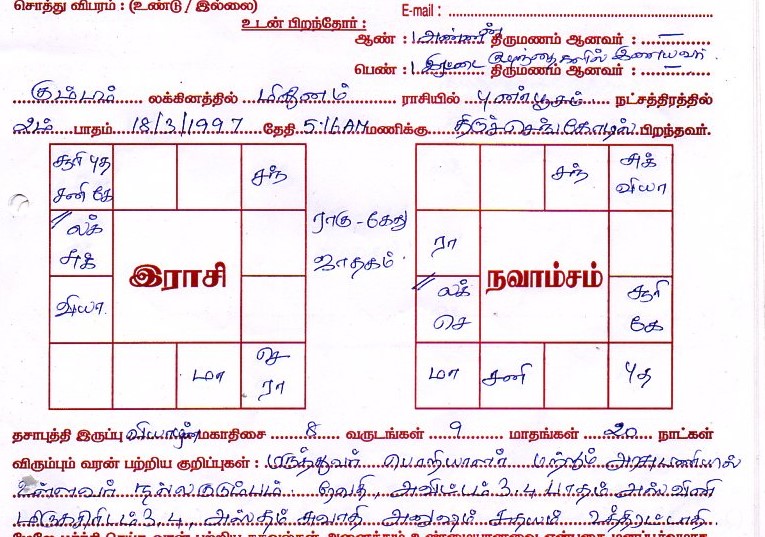 சொத்து விபரம் : (உண்டு / இல்லை)
E-mail :
உடன் பிறந்தோர் :
ஆண் : 1 அண்ணன் திருமணம் ஆனவர் : —
பெண் : 1 இரட்டை குழந்தைகளில் இளையவர் திருமணம் ஆனவர் : —
கும்பம் லக்கினத்தில் மிதுனம் ராசியில் புனர்பூசம் நட்சத்திரத்தில்
2ம் பாதம் 18/3/1997 தேதி 5:16AM மணிக்கு திருச்செங்கோடில் பிறந்தவர்.
சூரி புத சனி கே
சந்
லக் சுக்
வியா
மா
செ ரா
இராசி
ராகு - கேது
ஜாதகம்
சந்
சுக் வியா
ரா
லக் செ
சூரி கே
மா
சனி
புத
நவாம்சம்
தசாபுத்தி இருப்பு வியாழன் மகாதிசை 8 வருடங்கள் 9 மாதங்கள் 20 நாட்கள்
விரும்பும் வரன் பற்றிய குறிப்புகள் : மருத்துவர் பொறியாளர் மற்றும் அரசுபணியில்
உள்ளவர் நல்லகுடும்பம் ரேவதி, அவிட்டம் 3,4 பாதம் அஸ்வினி
மிருகசிரிடம் 3,4, அஸ்தம் சுவாதி அனுஷம் சதயம் உத்திரட்டாதி